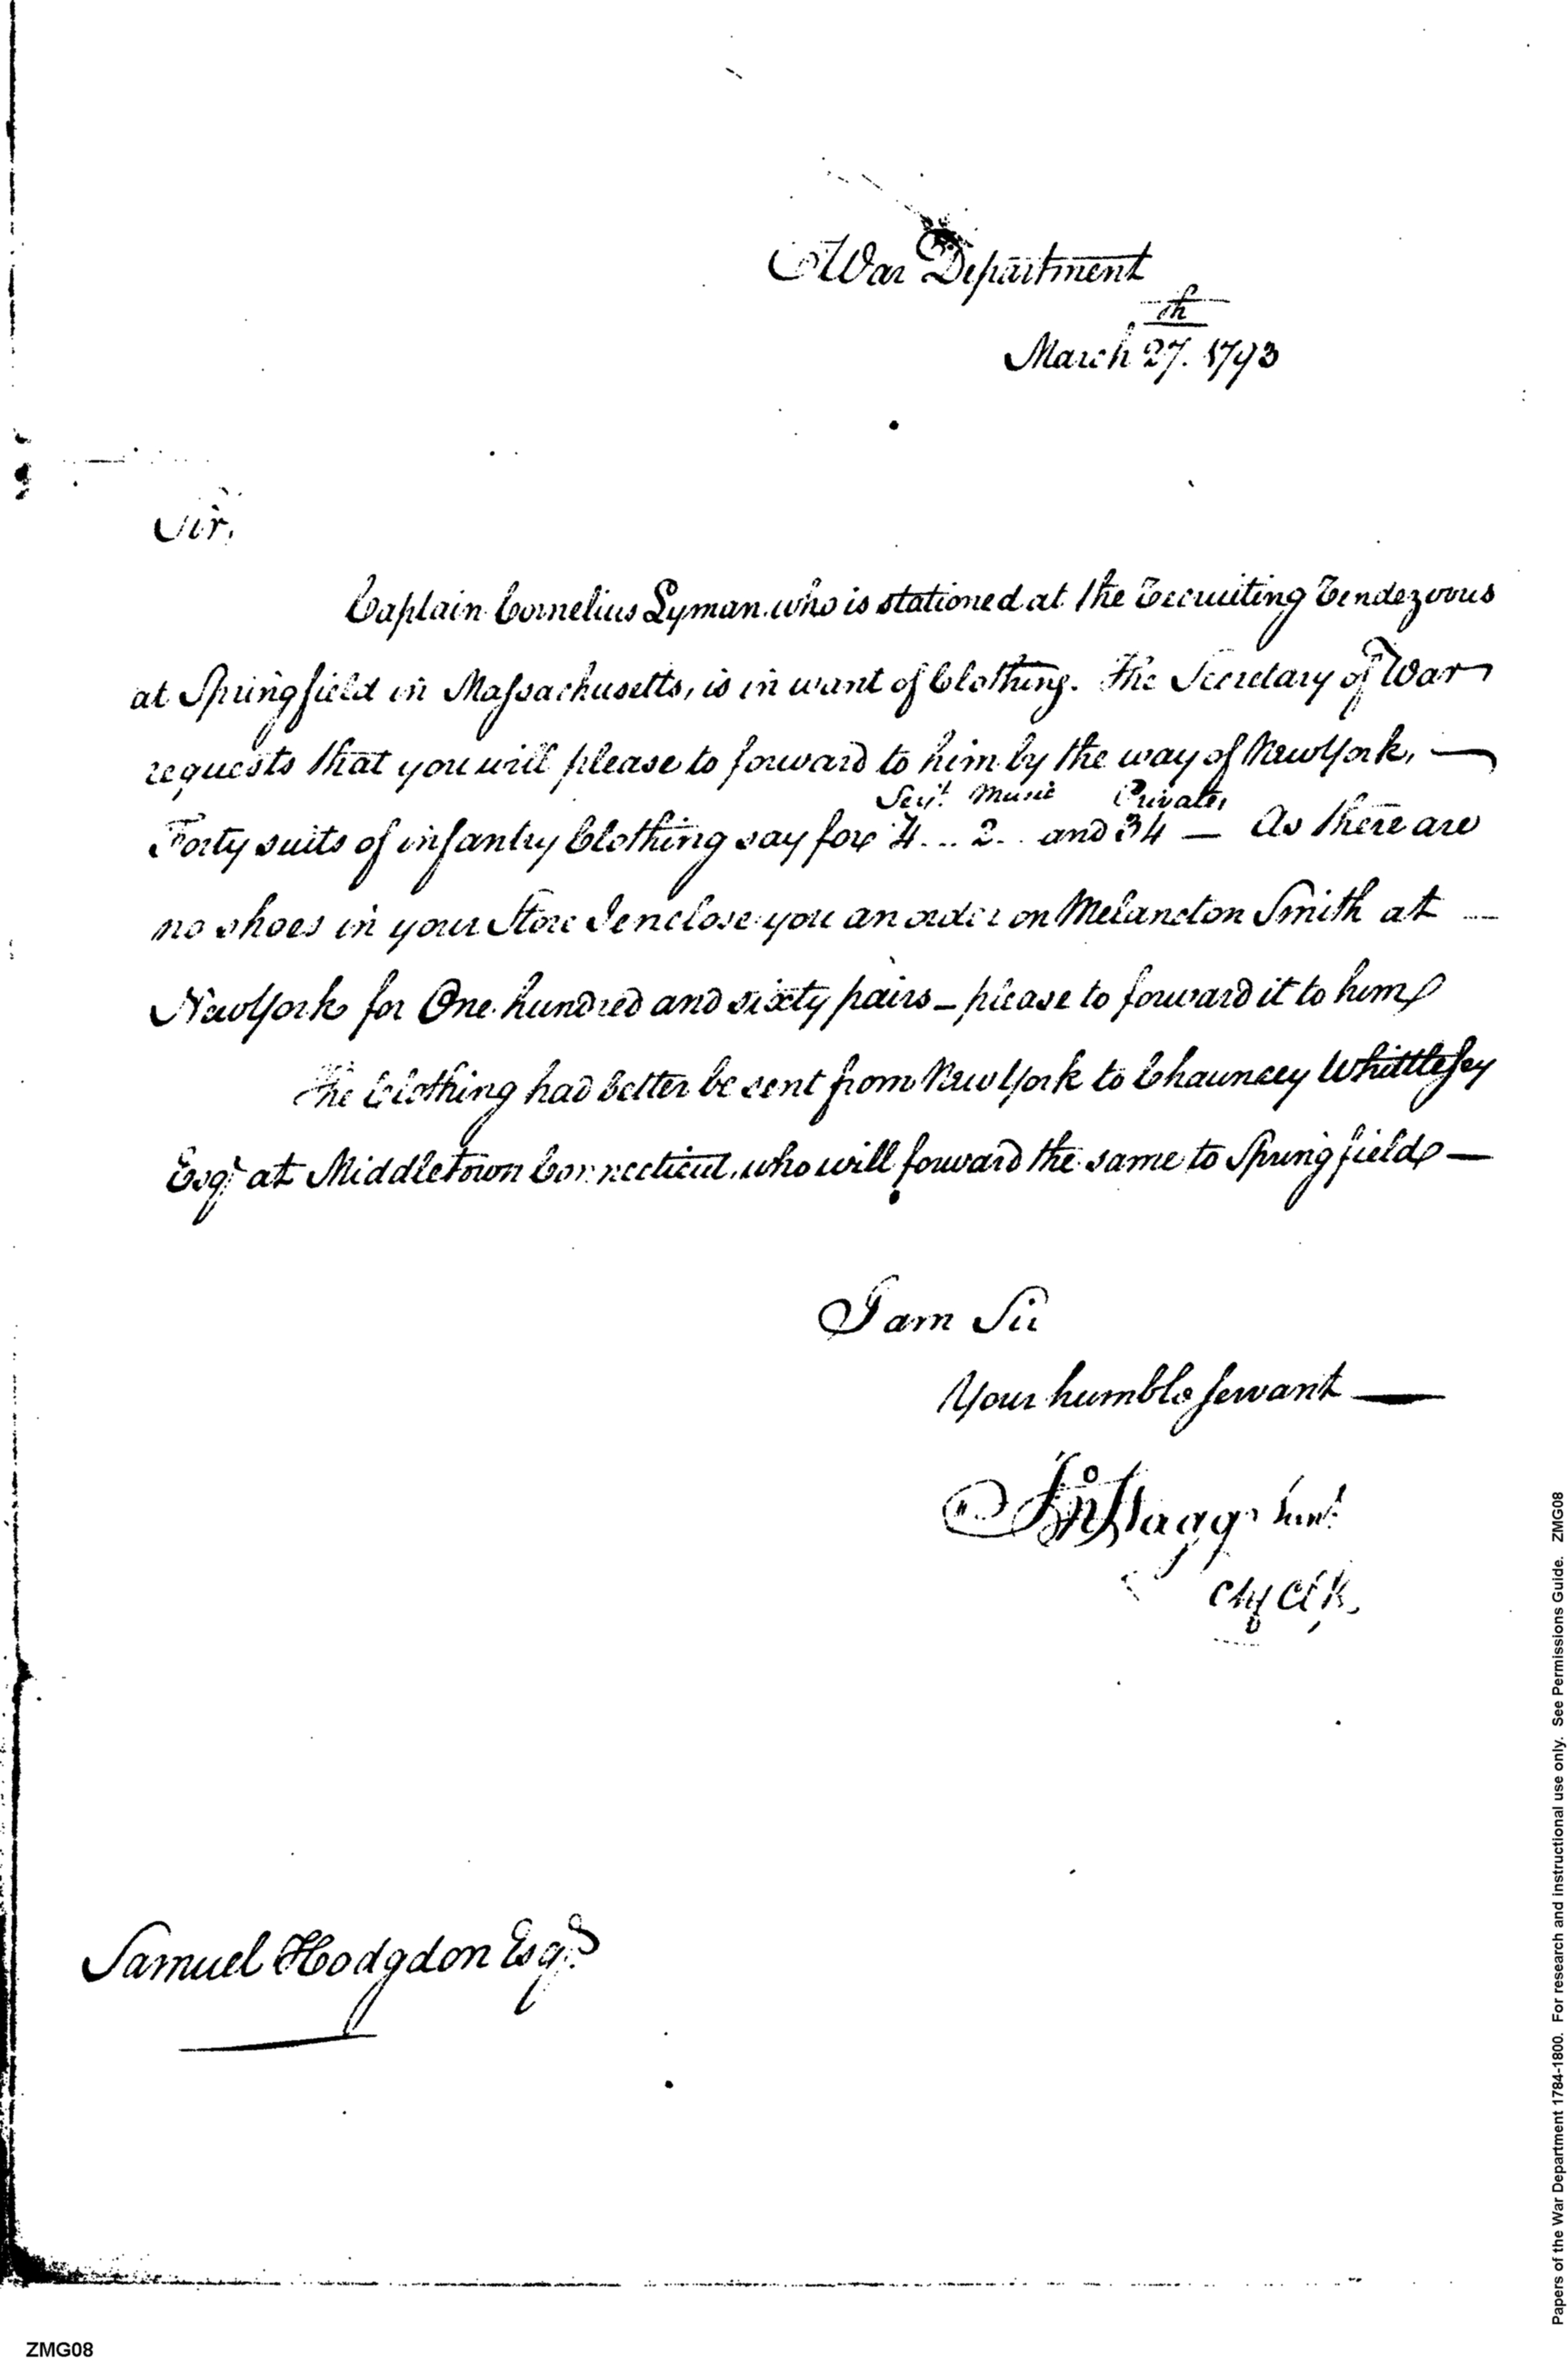 War Department
March 27.th 1793
Sir,
Captain Cornelius Lyman who is stationed at the recruiting rendezvous
at Springfield in Massachusetts, is in want of Clothing. The Secretary of War
requests that you will please to forward to him by the way of New York, —
Serjt Music Privates
Forty suits of infantry Clothing say for 4... 2.. and 34 — As there are
no shoes in your Store I enclose you an order on Melancton Smith at —
New York for One hundred and sixty pairs – please to forward it to him
The Clothing had better be sent from New York to Chauncey Whittlesey
Esqr at Middletown Connecticut, who will forward the same to Springfield —
I am Sir
Your humble servant —
Jno Stagg Junr
Chf Clk.
Samuel Hodgdon Esqr
ZMG08
Papers of the War Department 1784-1800. For research and instructional use only. See Permissions Guide. ZMG08